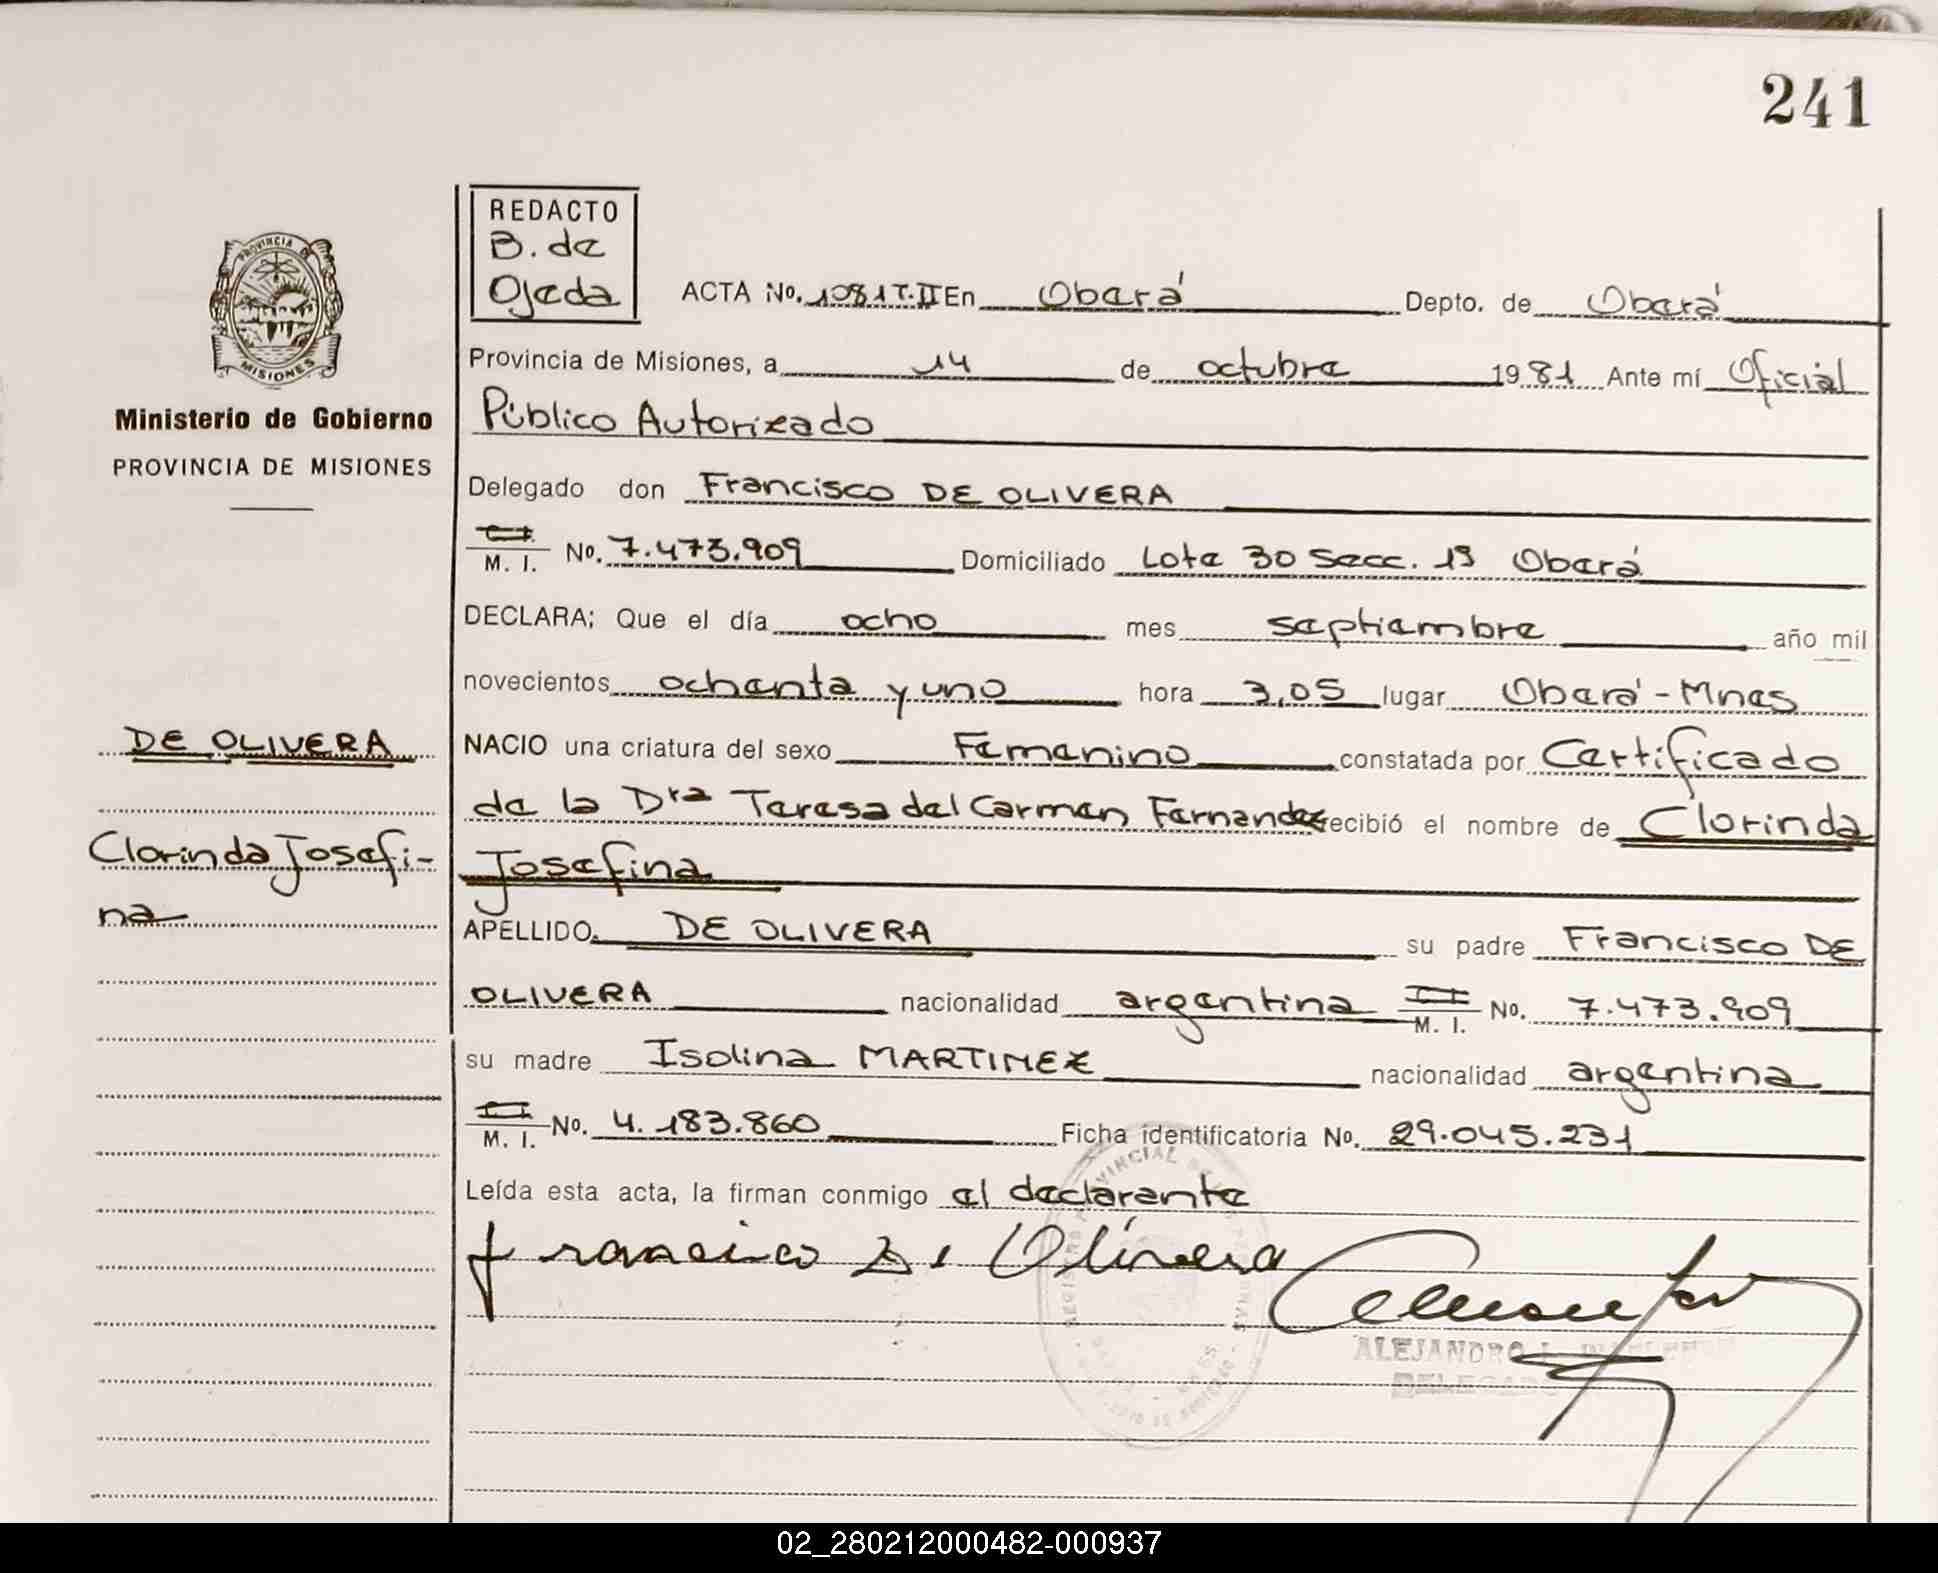 241
REDACTO
B. de
Ojeda
ACTA No. 1081 T.II En Oberá Depto. de Oberá
Provincia de Misiones, a 14 de octubre 1981 Ante mí Oficial
Público Autorizado
Delegado don Francisco DE OLIVERA
M. I. No. 7.473.909 Domiciliado Lote 30 Secc. 13 Oberá
DECLARA; Que el día ocho mes septiembre año mil
novecientos ochenta y uno hora 3,05 lugar Oberá - Mnes
NACIO una criatura del sexo Femenino constatada por Certificado
de la Dra Teresa del Carmen Fernandez recibió el nombre de Clorinda
Josefina
APELLIDO. DE OLIVERA su padre Francisco DE
OLIVERA nacionalidad argentina M. I. No. 7.473.909
su madre Isolina MARTINEZ nacionalidad argentina
M. I. No. 4.183.860 Ficha identificatoria No. 29.045.231
Leída esta acta, la firman conmigo el declarante
Francisco De Olivera
ALEJANDRO
DELEGADO
PROVINCIA DE
MISIONES
Ministerio de Gobierno
PROVINCIA DE MISIONES
DE OLIVERA
Clorinda Josefi-
na
02_280212000482-000937